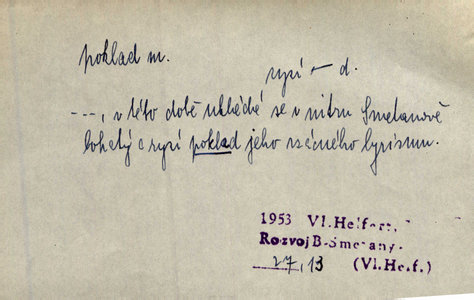 poklad m.
ryzí — d.
---, v této době ukládá se v nitru Smetanově
bohatý a ryzí poklad jeho vzácného lyrismu.
1953 Vl. Helfert,
Rozvoj B. Smetany.
27, 13 (Vl. Helf.)